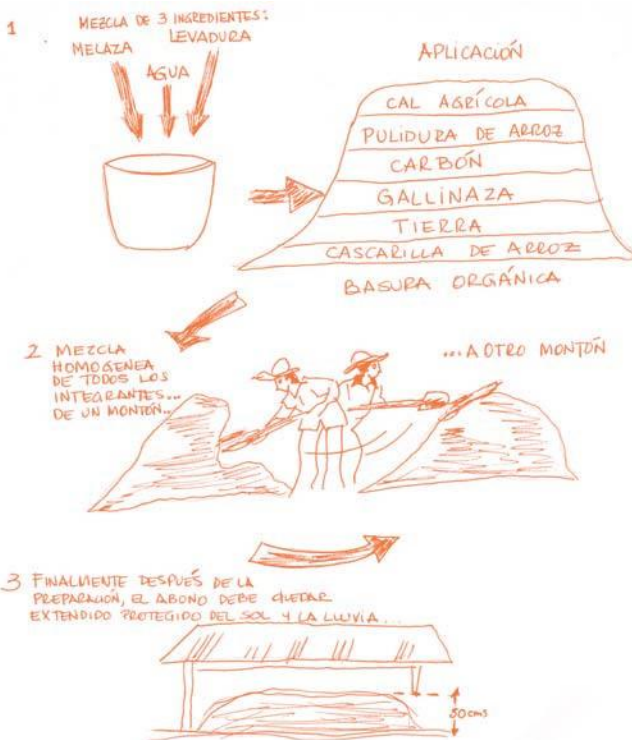 1
MEZCLA DE 3 INGREDIENTES:
MELAZA
AGUA
LEVADURA
APLICACIÓN
CAL AGRÍCOLA
PULIDURA DE ARROZ
CARBÓN
GALLINAZA
TIERRA
CASCARILLA DE ARROZ
BASURA ORGÁNICA
2 MEZCLA
HOMOGENEA
DE TODOS LOS
INTEGRANTES...
DE UN MONTÓN..
...A OTRO MONTÓN
3 FINALMENTE DESPUÉS DE LA
PREPARACIÓN, EL ABONO DEBE QUEDAR
EXTENDIDO PROTEGIDO DEL SOL Y LA LLUVIA...
50cms